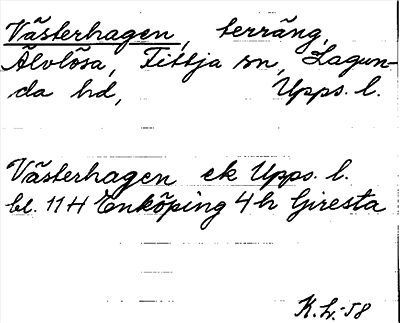 Västerhagen, terräng,
Älvlösa, Tittja sn, Lagun-
da hd, Upps. l.
Västerhagen ek Upps. l.
bl. 11H Enköping 4h Giresta
K.L.-58